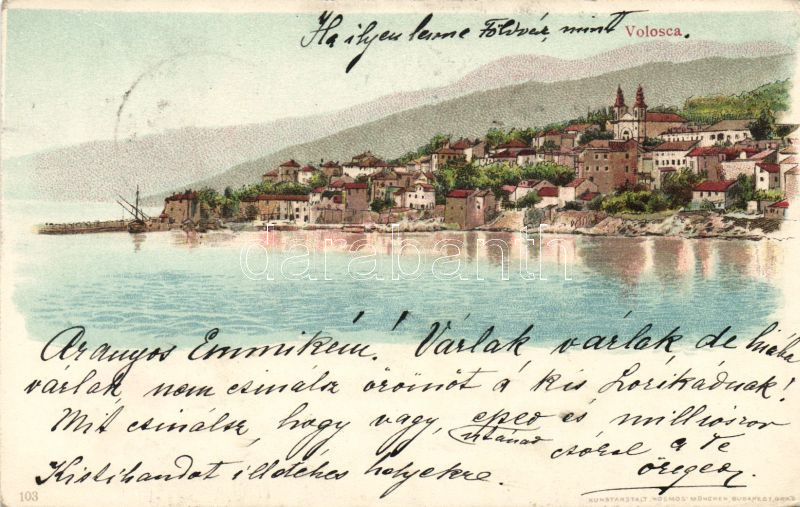 Ha ilyen lenne Földvár, mint
Volosca.
darabanth
Aranyos Emmikém! Várlak várlak de hiába
várlak, nem csinálsz örömöt a kis Lórikádnak!
Mit csinálsz, hogy vagy, és milliószor
utánad csókol a Te
Kistihandot illetékes helyekre.
öreged
103
KUNSTANSTALT "KOSMOS" MÜNCHEN, BUDAPEST, GRAZ